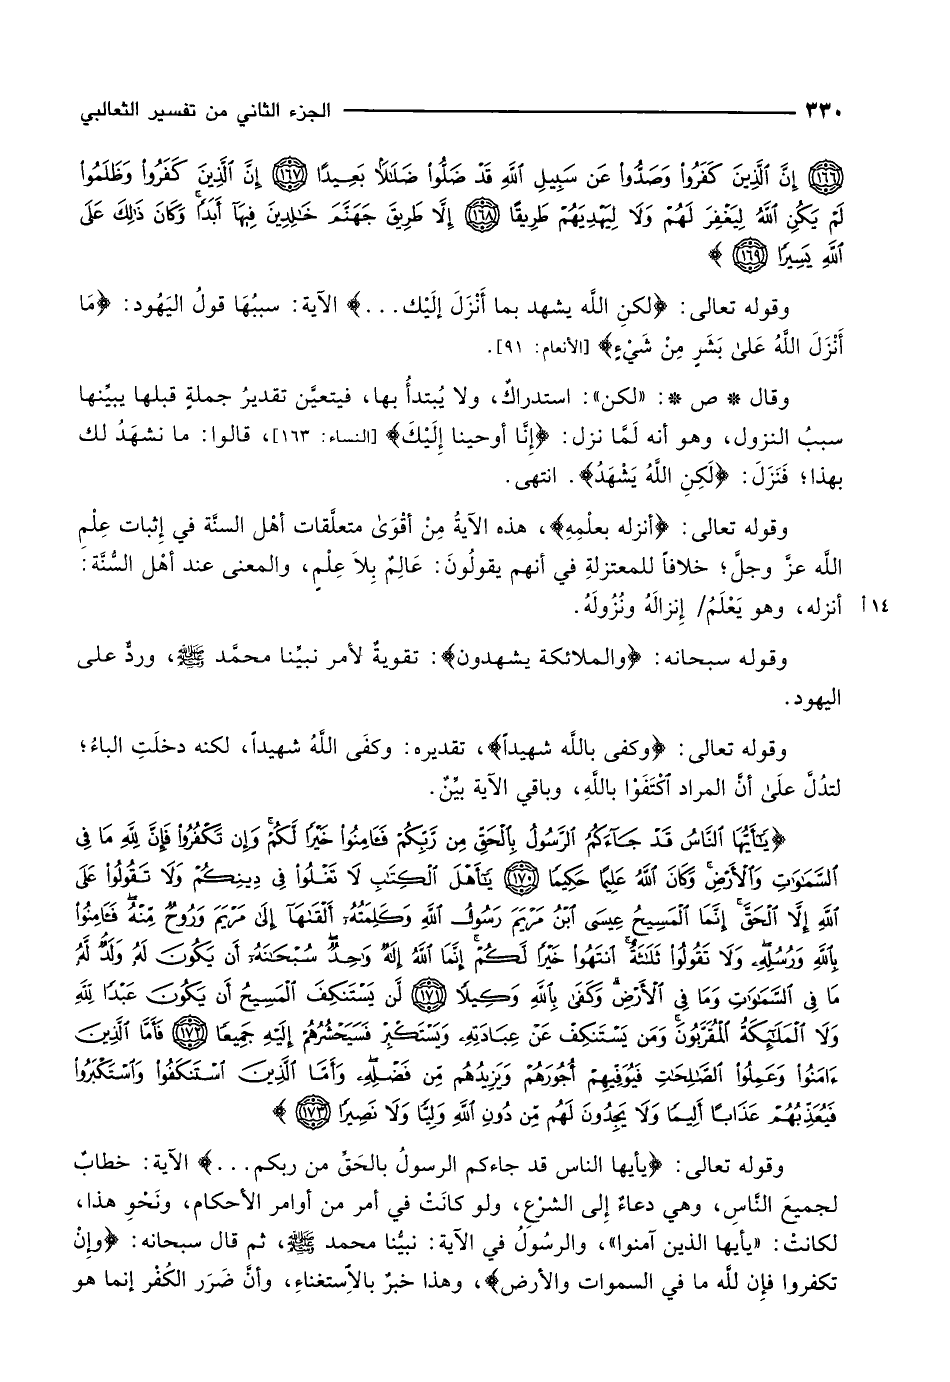 ٣٣٠ الجزء الثاني من تفسير الثعالبي
(١٦٦) إِنَّ ٱلَّذِينَ كَفَرُواْ وَصَدُّواْ عَن سَبِيلِ ٱللَّهِ قَدْ ضَلُّواْ ضَلَٰلَاۢ بَعِيدًا (١٦٧) إِنَّ ٱلَّذِينَ كَفَرُواْ وَظَلَمُواْ
لَمْ يَكُنِ ٱللَّهُ لِيَغْفِرَ لَهُمْ وَلَا لِيَهْدِيَهُمْ طَرِيقًا (١٦٨) إِلَّا طَرِيقَ جَهَنَّمَ خَٰلِدِينَ فِيهَآ أَبَدًاۚ وَكَانَ ذَٰلِكَ عَلَى
ٱللَّهِ يَسِيرًا (١٦٩) ﴾
وقوله تعالى: ﴿لكنِ اللَّه يشهد بما أَنْزَلَ إِلَيْك...﴾ الآية: سببُهَا قولُ اليَهُود: ﴿مَا
أَنْزَلَ اللَّهُ عَلىٰ بَشَرٍ مِنْ شَيْءٍ﴾ [الأنعام: ٩١].
وقال * ص *: «لكن»: استدراكٌ، ولا يُبتدأُ بها، فيتعيَّن تقديرُ جملةٍ قبلها يبيِّنها
سببُ النزول، وهو أنه لَمَّا نزل: ﴿إِنَّا أوحينا إِلَيْكَ﴾ [النساء: ١٦٣]، قالوا: ما نشهَدُ لك
بهذا؛ فَنَزَلَ: ﴿لَكِنِ اللَّهُ يَشْهَدُ﴾. انتهى.
وقوله تعالى: ﴿أنزله بعلْمِهِ﴾، هذه الآيةُ مِنْ أقْوَىٰ متعلَّقات أهْل السنَّة في إثبات عِلْمِ
اللَّه عزَّ وجلَّ؛ خلافاً للمعتزلةِ في أنهم يقولُونَ: عَالِمٌ بِلاَ عِلْمٍ، والمعنى عند أهْل السُّنَّة:
أنزله، وهو يَعْلَمُ/ إِنزالَهُ ونُزُولَهُ. ١٤ أ
وقوله سبحانه: ﴿والملائكة يشهدون﴾: تقويةٌ لأمر نبيِّنا محمَّد ﷺ، وردٌّ على
اليهود.
وقوله تعالى: ﴿وكفى باللَّه شهيداً﴾، تقديره: وكفَى اللَّهُ شهيداً، لكنه دخلَتِ الباءُ؛
لتدُلَّ علَىٰ أنَّ المراد ٱكْتَفَوْا باللَّهِ، وباقي الآية بيِّنٌ.
﴿يَٰٓأَيُّهَا ٱلنَّاسُ قَدْ جَآءَكُمُ ٱلرَّسُولُ بِٱلْحَقِّ مِن رَّبِّكُمْ فَـَٔامِنُواْ خَيْرًا لَّكُمْۚ وَإِن تَكْفُرُواْ فَإِنَّ لِلَّهِ مَا فِى
ٱلسَّمَٰوَٰتِ وَٱلْأَرْضِۚ وَكَانَ ٱللَّهُ عَلِيمًا حَكِيمًا (١٧٠) يَٰٓأَهْلَ ٱلْكِتَٰبِ لَا تَغْلُواْ فِى دِينِكُمْ وَلَا تَقُولُواْ عَلَى
ٱللَّهِ إِلَّا ٱلْحَقَّۚ إِنَّمَا ٱلْمَسِيحُ عِيسَى ٱبْنُ مَرْيَمَ رَسُولُ ٱللَّهِ وَكَلِمَتُهُۥٓ أَلْقَىٰهَآ إِلَىٰ مَرْيَمَ وَرُوحٌ مِّنْهُۖ فَـَٔامِنُواْ
بِٱللَّهِ وَرُسُلِهِۦۖ وَلَا تَقُولُواْ ثَلَٰثَةٌۚ ٱنتَهُواْ خَيْرًا لَّكُمْۚ إِنَّمَا ٱللَّهُ إِلَٰهٌ وَٰحِدٌۖ سُبْحَٰنَهُۥٓ أَن يَكُونَ لَهُۥ وَلَدٌۘ لَّهُۥ
مَا فِى ٱلسَّمَٰوَٰتِ وَمَا فِى ٱلْأَرْضِۗ وَكَفَىٰ بِٱللَّهِ وَكِيلًا (١٧١) لَّن يَسْتَنكِفَ ٱلْمَسِيحُ أَن يَكُونَ عَبْدًا لِّلَّهِ
وَلَا ٱلْمَلَٰٓئِكَةُ ٱلْمُقَرَّبُونَۚ وَمَن يَسْتَنكِفْ عَنْ عِبَادَتِهِۦ وَيَسْتَكْبِرْ فَسَيَحْشُرُهُمْ إِلَيْهِ جَمِيعًا (١٧٢) فَأَمَّا ٱلَّذِينَ
ءَامَنُواْ وَعَمِلُواْ ٱلصَّٰلِحَٰتِ فَيُوَفِّيهِمْ أُجُورَهُمْ وَيَزِيدُهُم مِّن فَضْلِهِۦۖ وَأَمَّا ٱلَّذِينَ ٱسْتَنكَفُواْ وَٱسْتَكْبَرُواْ
فَيُعَذِّبُهُمْ عَذَابًا أَلِيمًا وَلَا يَجِدُونَ لَهُم مِّن دُونِ ٱللَّهِ وَلِيًّا وَلَا نَصِيرًا (١٧٣) ﴾
وقوله تعالى: ﴿يأيها الناس قد جاءكم الرسولُ بالحَقِّ من ربكم...﴾ الآية: خطابٌ
لجميعَ النَّاسِ، وهي دعاءٌ إلى الشرْعِ، ولو كانَتْ في أمر من أوامر الأحكام، ونَحْوِ هذا،
لكانتْ: «يأيها الذين آمنوا»، والرسُولُ في الآية: نبيُّنا محمد ﷺ، ثم قال سبحانه: ﴿وإِنْ
تكفروا فإِن للَّه ما في السموات والأرض﴾، وهذا خبرٌ بالٱستغناءِ، وأنَّ ضَرَر الكُفْر إنما هو